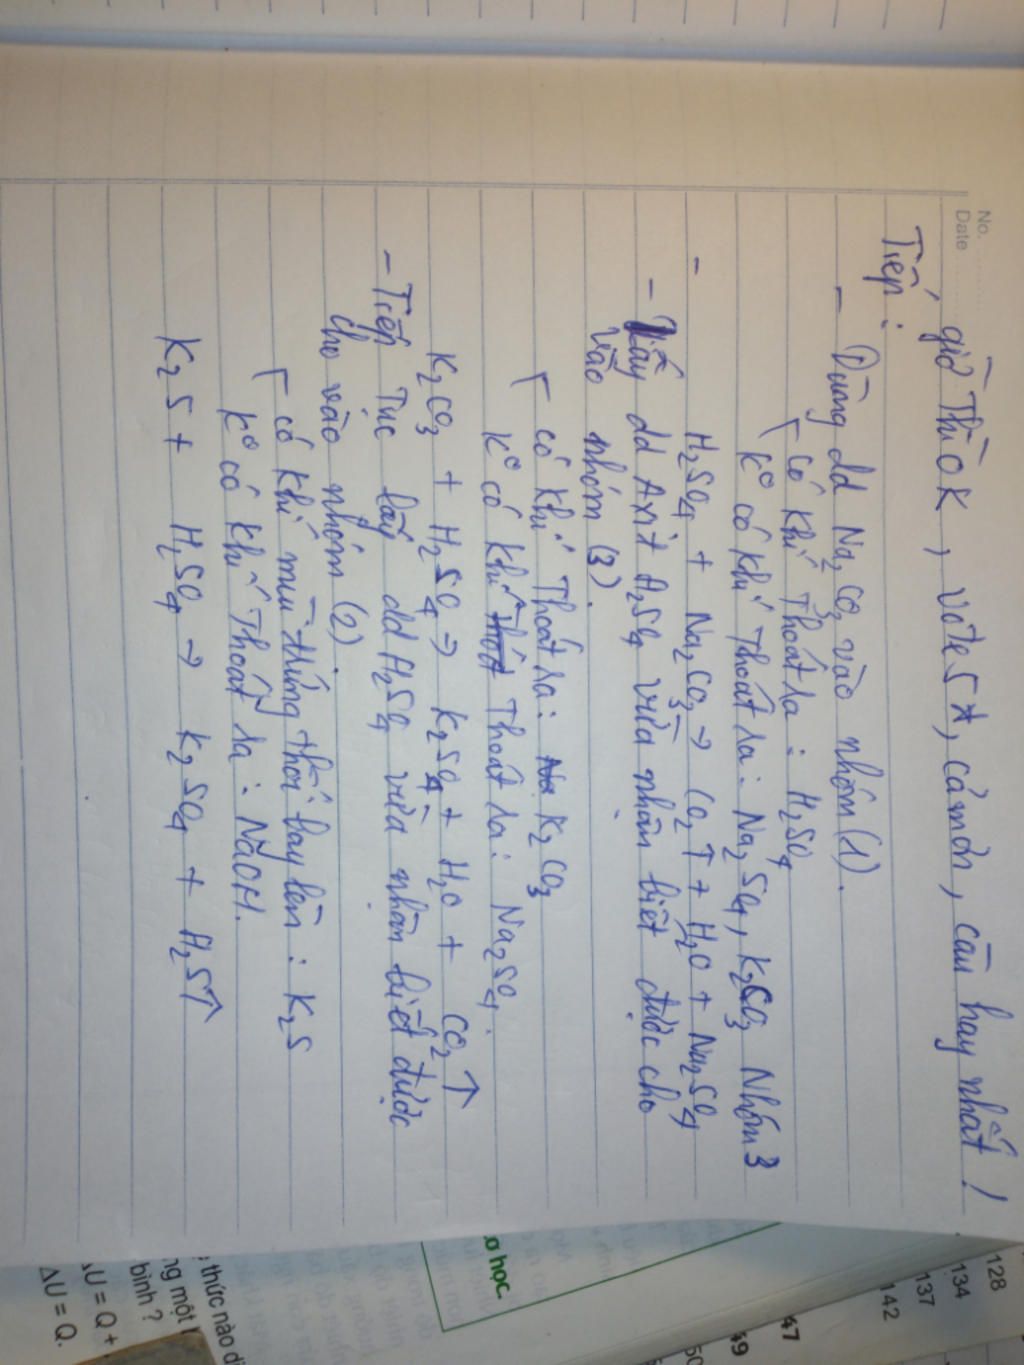 No.
Date
giờ thì OK, vote 5*, cảm ơn, câu hay nhất!
Tiếp:
- Dùng dd Na2CO3 vào nhóm (1).
có khí thoát ra: H2SO4
ko có khí thoát ra: Na2SO4, K2CO3 Nhóm 3
- H2SO4 + Na2CO3 → CO2↑ + H2O + Na2SO4
- Lấy dd Axit H2SO4 vừa nhận biết được cho
vào nhóm (3).
có khí thoát ra: K2CO3
ko có khí thoát ra: Na2SO4.
K2CO3 + H2SO4 → K2SO4 + H2O + CO2↑
- Tiếp tục lấy dd H2SO4 vừa nhận biết được
cho vào nhóm (2).
có khí mùi trứng thối bay lên: K2S
ko có khí thoát ra: NaOH.
K2S + H2SO4 → K2SO4 + H2S↑
128
134
137
142
47
49
50
o học.
thức nào d
ng một
bình ?
ΔU = Q +
ΔU = Q.